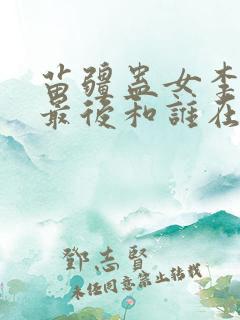 苗疆蠱女李
最後和誰在
鄧志賢
未經同意禁止轉載